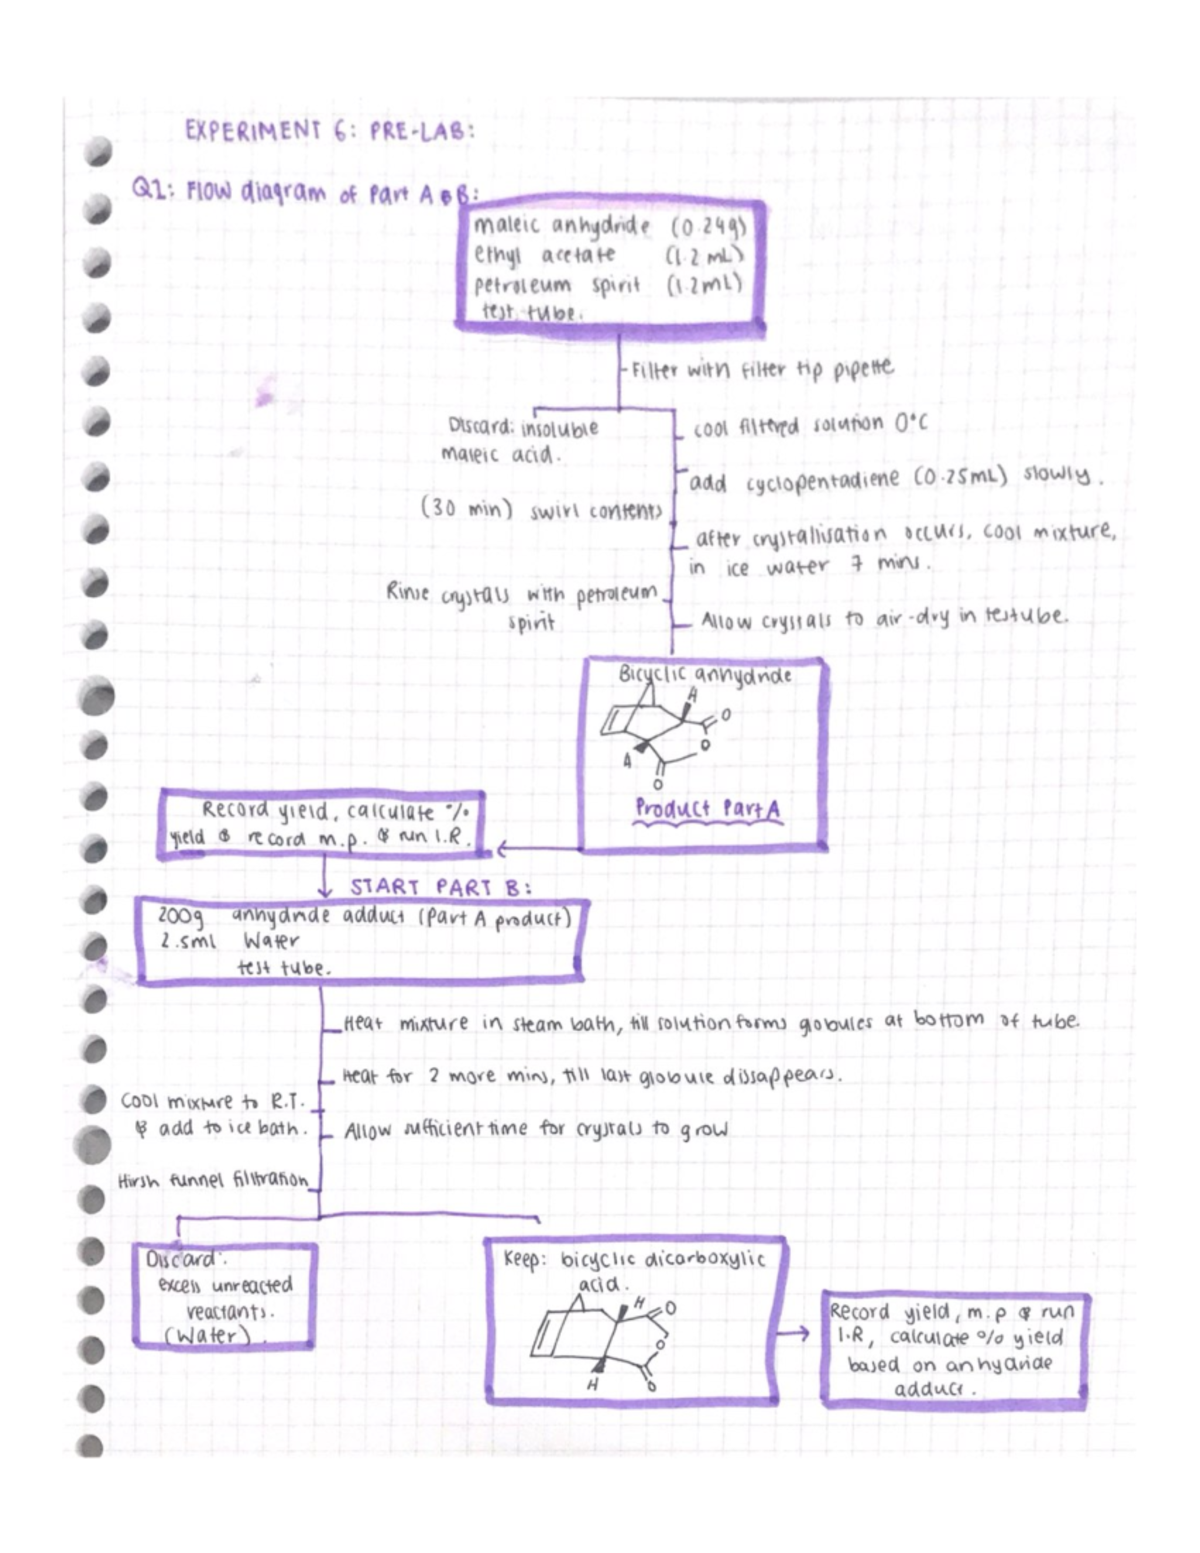 EXPERIMENT 6: PRE-LAB:
Q1: Flow diagram of Part A & B:
maleic anhydride (0.24g)
ethyl acetate (1.2 mL)
petroleum spirit (1.2mL)
test tube.
Filter with filter tip pipette
Discard: insoluble
maleic acid.
cool filtered solution 0°C
add cyclopentadiene (0.25mL) slowly.
(30 min) swirl contents
after crystalisation occurs, cool mixture,
in ice water 7 mins.
Rinse crystals with petroleum
spirit
Allow crystals to air-dry in testube.
Bicyclic anhydride
H
O
O
H
O
Product Part A
Record yield, calculate %
yield & record m.p. & run I.R.
START PART B:
200g anhydride adduct (Part A product)
2.5ml Water
test tube.
Heat mixture in steam bath, till solution forms globules at bottom of tube.
Heat for 2 more mins, till last globule dissappears.
Cool mixture to R.T.
& add to ice bath.
Allow sufficient time for crystals to grow
Hirsh funnel filtration
Discard:
excess unreacted
reactants.
(Water).
Keep: bicyclic dicarboxylic
acid.
H
O
O
H
O
Record yield, m.p & run
I.R, calculate % yield
based on anhydride
adduct.